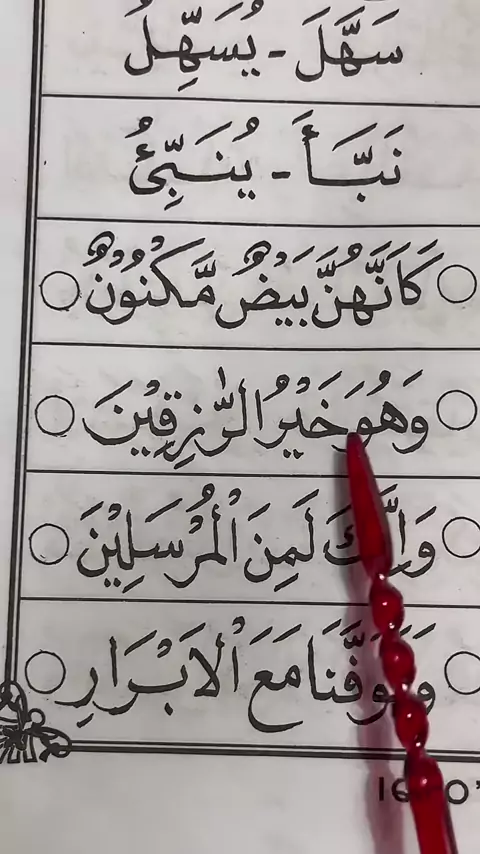 سَهَّلَ - يُسَهِّلُ
نَبَّأَ - يُنَبِّئُ
كَاَنَّهُنَّ بَيْضٌ مَّكْنُوْنٌ
وَهُوَ خَيْرُ الرّٰزِقِيْنَ
وَاِنَّكَ لَمِنَ الْمُرْسَلِيْنَ
وَتَوَفَّنَا مَعَ الْاَبْرَارِ